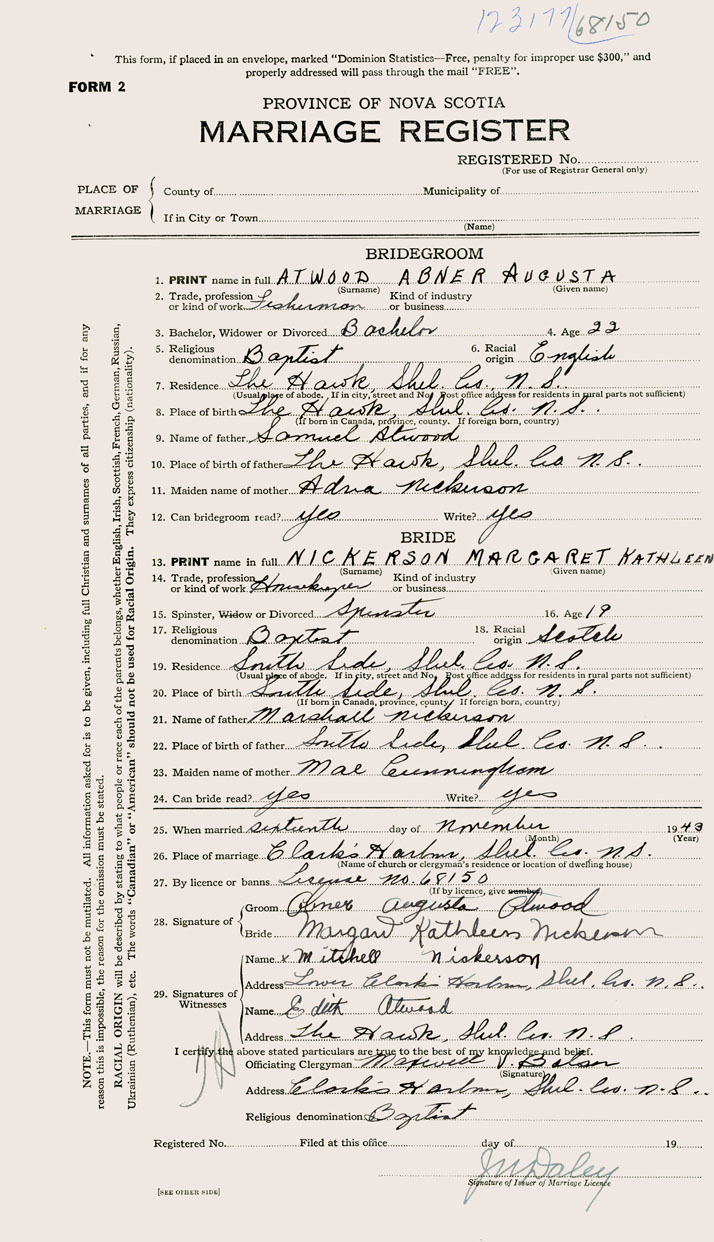 123177/68150
This form, if placed in an envelope, marked “Dominion Statistics—Free, penalty for improper use $300,” and
properly addressed will pass through the mail “FREE”.
FORM 2
PROVINCE OF NOVA SCOTIA
MARRIAGE REGISTER
REGISTERED No.
(For use of Registrar General only)
PLACE OF MARRIAGE
County of Municipality of
If in City or Town
(Name)
BRIDEGROOM
1. PRINT name in full ATWOOD ABNER AUGUSTA
(Surname) (Given name)
2. Trade, profession or kind of work Fisherman Kind of industry or business
3. Bachelor, Widower or Divorced Bachelor 4. Age 22
5. Religious denomination Baptist 6. Racial origin English
7. Residence The Hawk, Shel. Co. N. S.
(Usual place of abode. If in city, street and No. Post office address for residents in rural parts not sufficient)
8. Place of birth The Hawk, Shel. Co. N. S.
(If born in Canada, province, county. If foreign born, country)
9. Name of father Samuel Atwood
10. Place of birth of father The Hawk, Shel. Co N. S.
11. Maiden name of mother Adna Nickerson
12. Can bridegroom read? yes Write? yes
BRIDE
13. PRINT name in full NICKERSON MARGARET KATHLEEN
(Surname) (Given name)
14. Trade, profession or kind of work Housekeeper Kind of industry or business
15. Spinster, Widow or Divorced Spinster 16. Age 19
17. Religious denomination Baptist 18. Racial origin Scotch
19. Residence South Side, Shel. Co. N. S.
(Usual place of abode. If in city, street and No. Post office address for residents in rural parts not sufficient)
20. Place of birth South Side, Shel. Co. N. S.
(If born in Canada, province, county. If foreign born, country)
21. Name of father Marshall Nickerson
22. Place of birth of father South Side, Shel. Co. N. S.
23. Maiden name of mother Mae Cunningham
24. Can bride read? yes Write? yes
25. When married sixteenth day of November 1943
(Month) (Year)
26. Place of marriage Clark's Harbor, Shel. Co. N.S.
(Name of church or clergyman's residence or location of dwelling house)
27. By licence or banns License no. 68150
(If by licence, give number)
28. Signature of
Groom Abner Augusta Atwood
Bride Margaret Kathleen Nickerson
29. Signatures of Witnesses
Name x Mitchell Nickerson
Address Lower Clark's Harbor, Shel. Co. N. S.
Name Edith Atwood
Address The Hawk, Shel. Co. N. S.
I certify the above stated particulars are true to the best of my knowledge and belief.
Officiating Clergyman Maxwell V.
(Signature)
Address Clark's Harbor, Shel. Co. N. S.
Religious denomination Baptist
Registered No. Filed at this office day of 19
Daley
Signature of Issuer of Marriage Licence
[SEE OTHER SIDE]
NOTE.—This form must not be mutilated. All information asked for is to be given, including full Christian and surnames of all parties, and if for any
reason this is impossible, the reason for the omission must be stated.
RACIAL ORIGIN will be described by stating to what people or race each of the parents belongs, whether English, Irish, Scottish, French, German, Russian,
Ukrainian (Ruthenian), etc. The words “Canadian” or “American” should not be used for Racial Origin. They express citizenship (nationality).